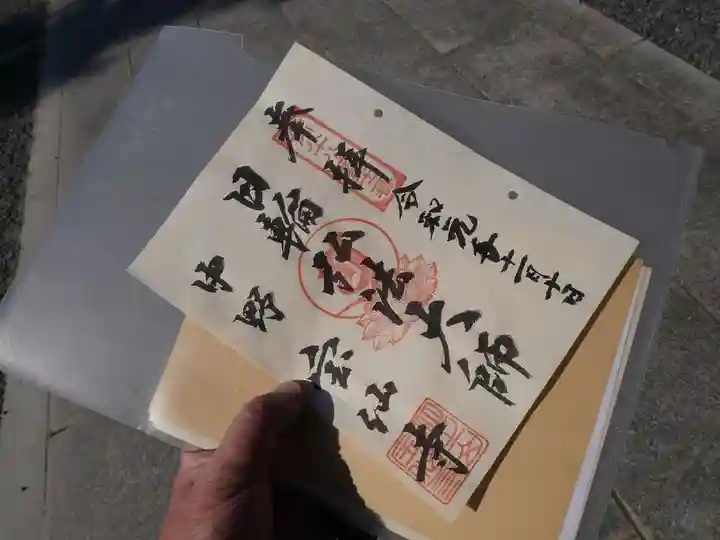 令和元年十一月十日
奉拝
日輪弘法大師
中野 宝仙寺